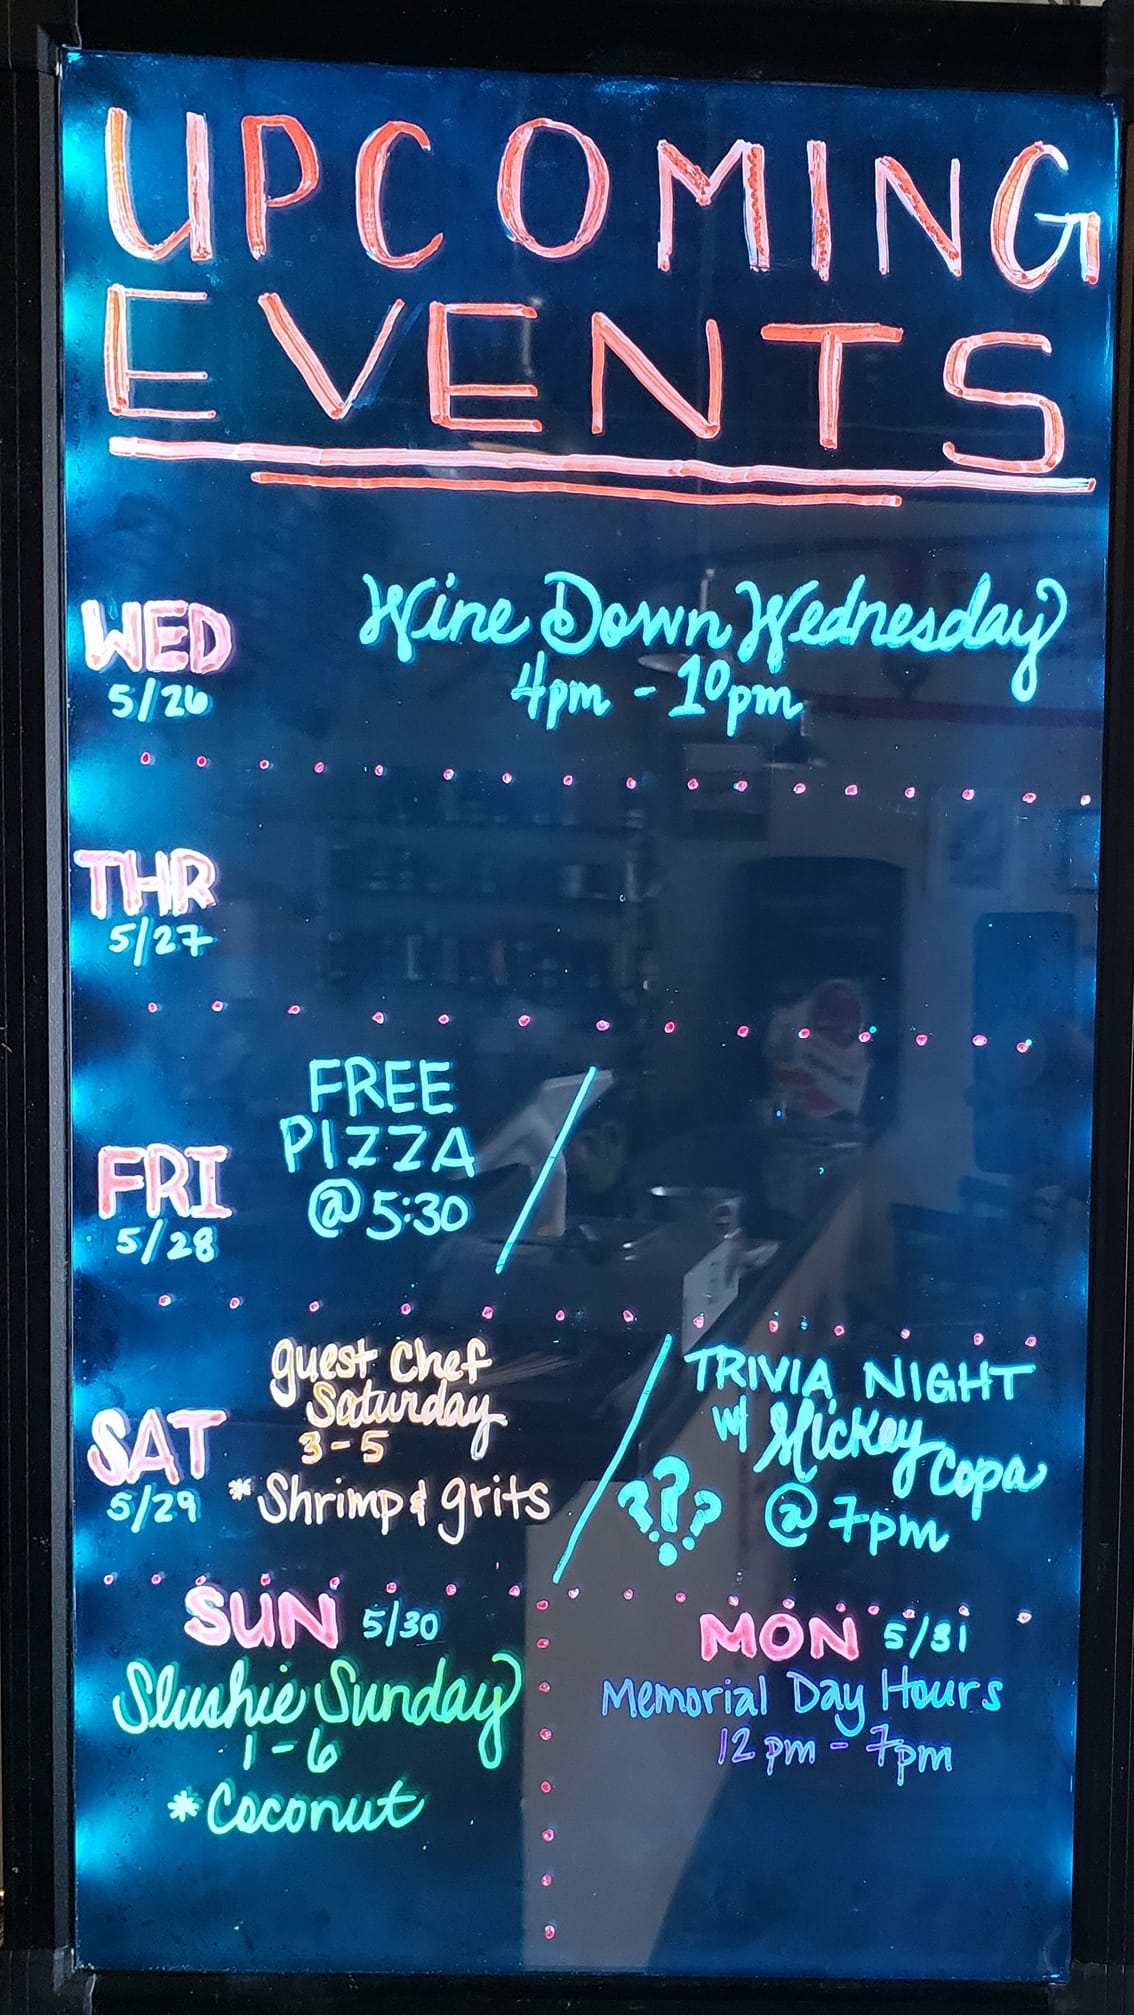 UPCOMING
EVENTS
WED
5/26
Wine Down Wednesday
4pm - 10pm
THR
5/27
FRI
5/28
FREE
PIZZA
@ 5:30
SAT
5/29
guest Chef
Saturday
3-5
*Shrimp & grits
TRIVIA NIGHT
w/ Mickey
Copa
@ 7pm
???
SUN 5/30
Slushie Sunday
1-6
*Coconut
MON 5/31
Memorial Day Hours
12pm - 7pm